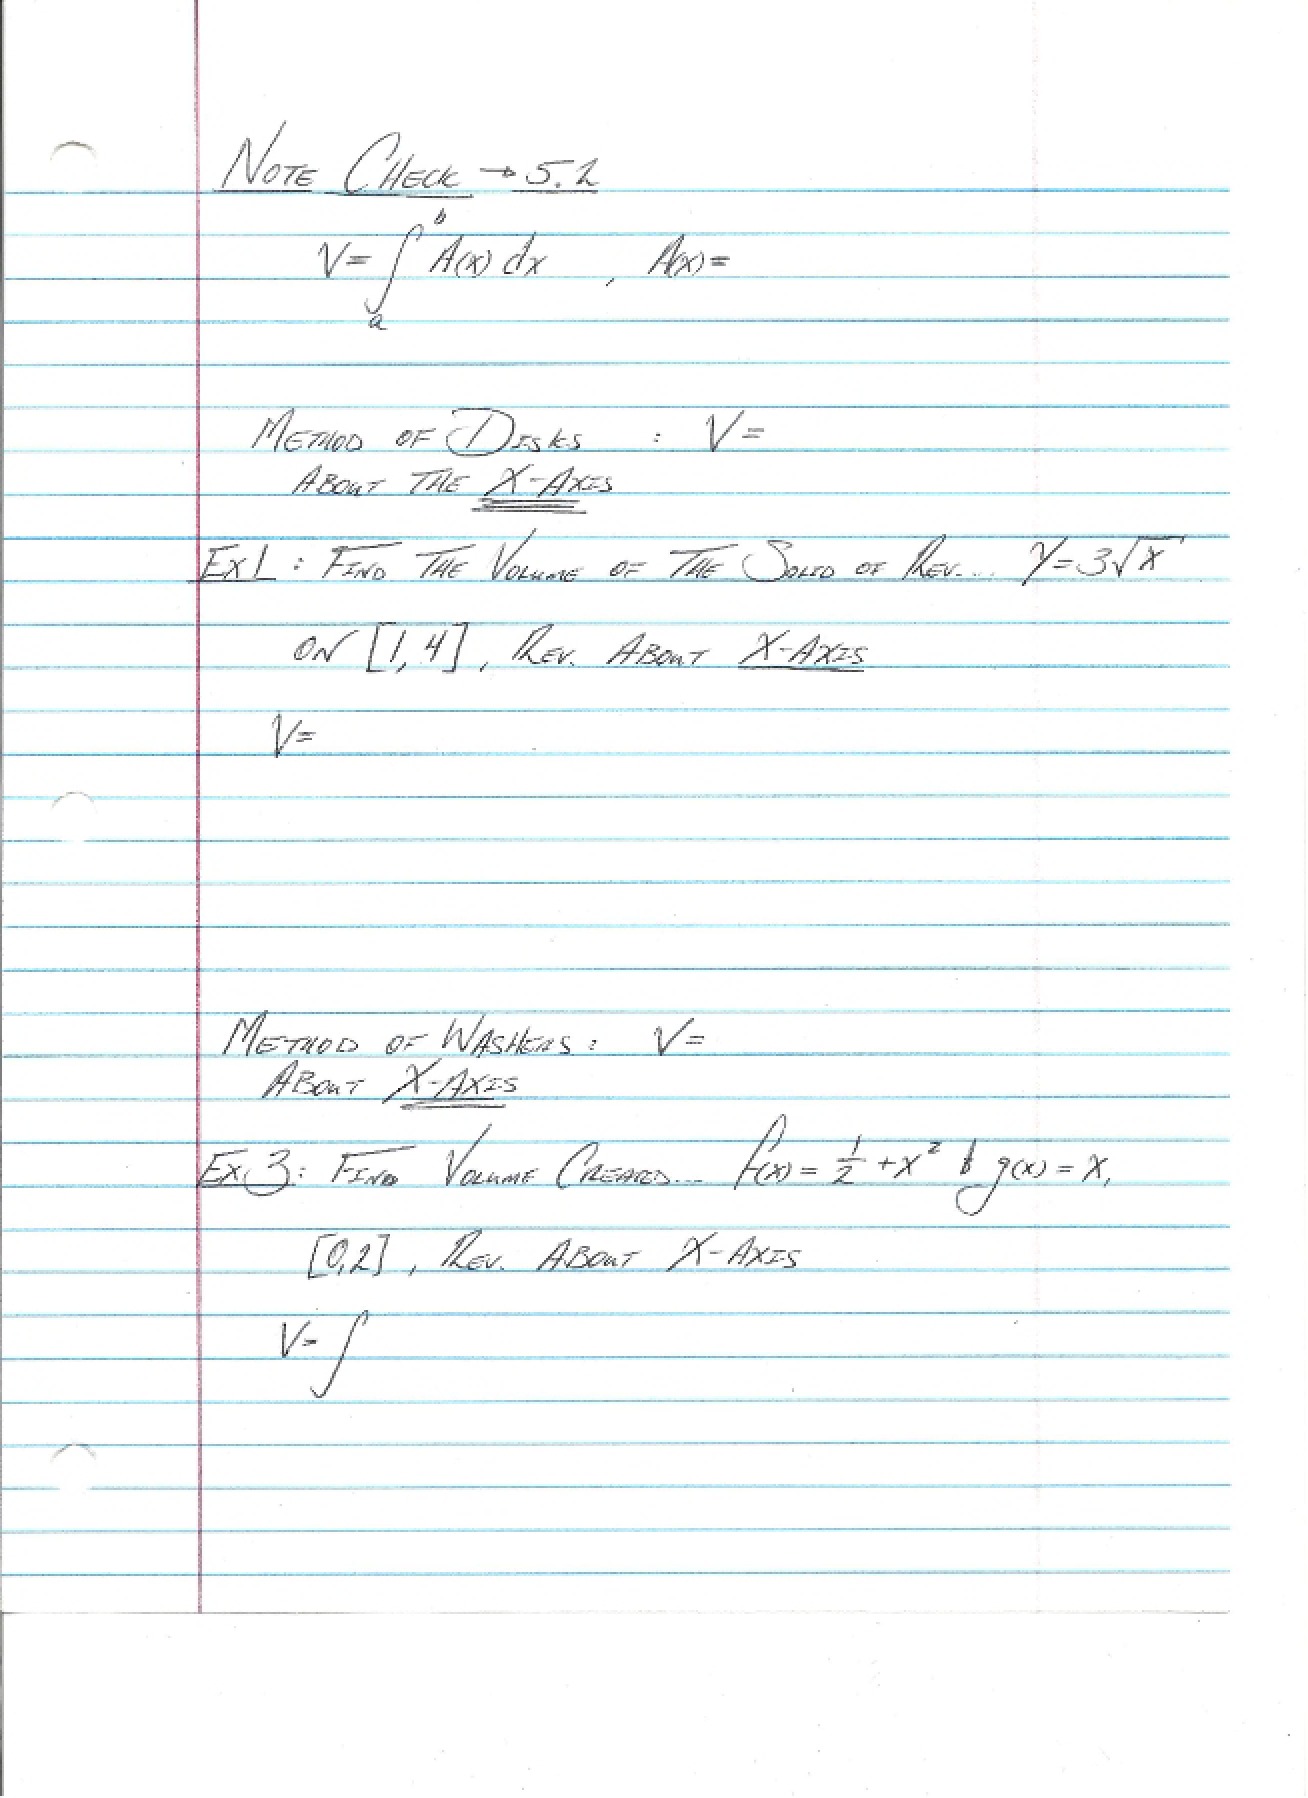 NOTE CHECK → 5.2
V = ∫ₐᵇ A(x) dx , A(x) =
METHOD OF DISKS : V =
ABOUT THE X-AXIS
EX 1 : FIND THE VOLUME OF THE SOLID OF REV... y = 3√x
ON [1, 4], REV. ABOUT X-AXIS
V =
METHOD OF WASHERS : V =
ABOUT X-AXIS
EX. 3 : FIND VOLUME CREATED... f(x) = 1/2 + x² & g(x) = x,
[0,2], REV. ABOUT X-AXIS
V = ∫